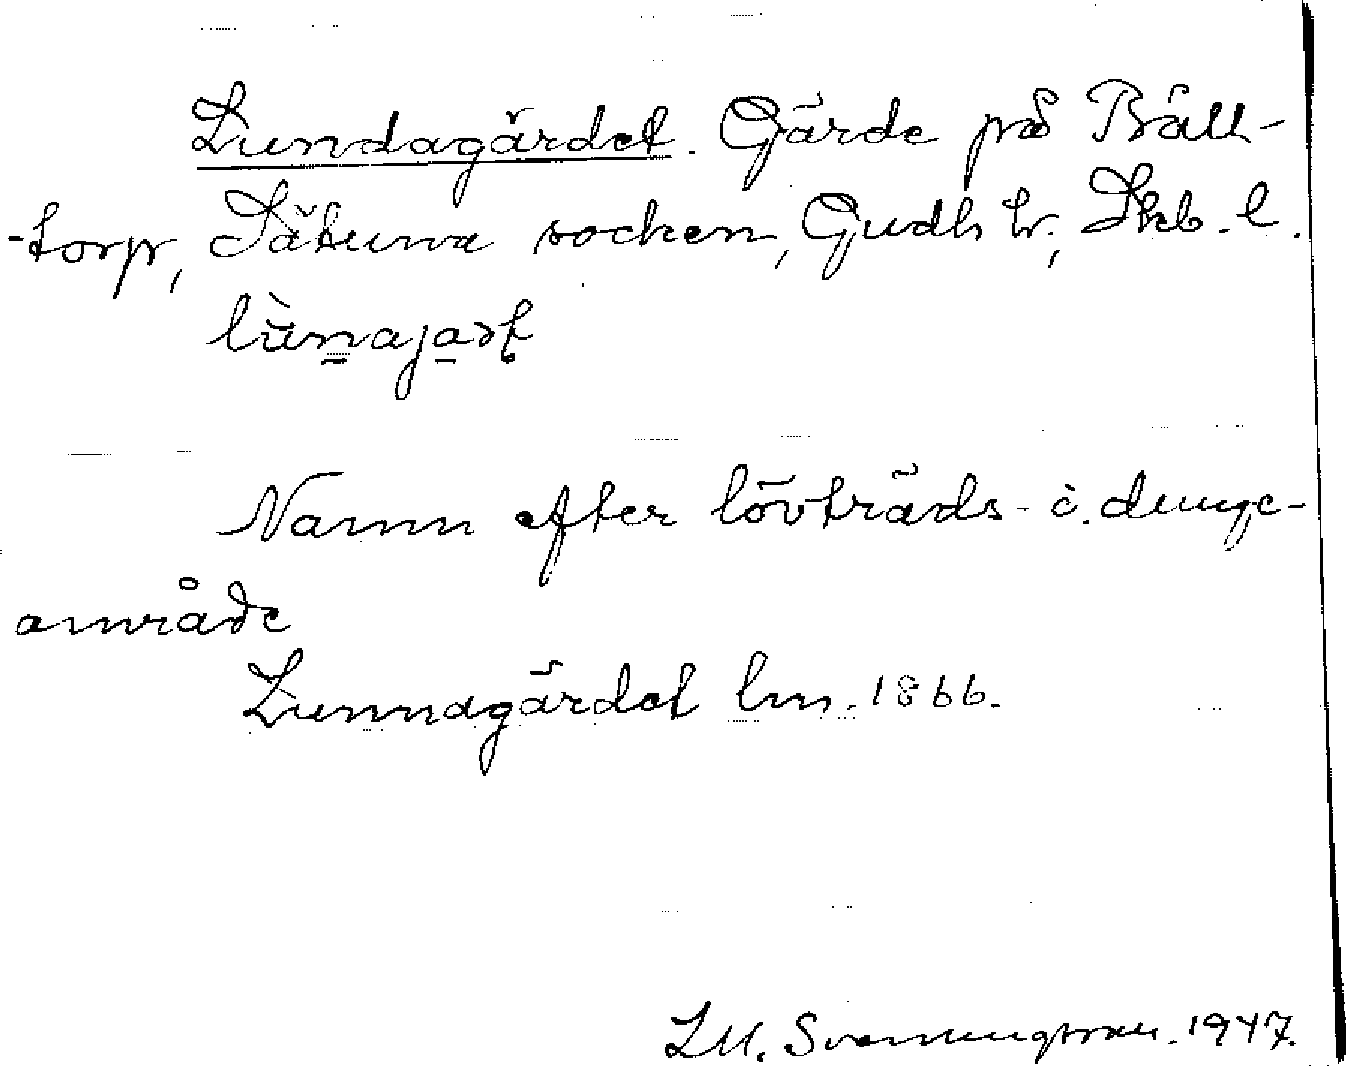 Lundagärdet. Gärde på Bäll-
-torp, Sätuna socken, Gudh hr, Skb. l.
Namn efter lövträds- o. dunge-
område
Lunnagärdet lm. 1866.
L.M. Svenungsson. 1947.